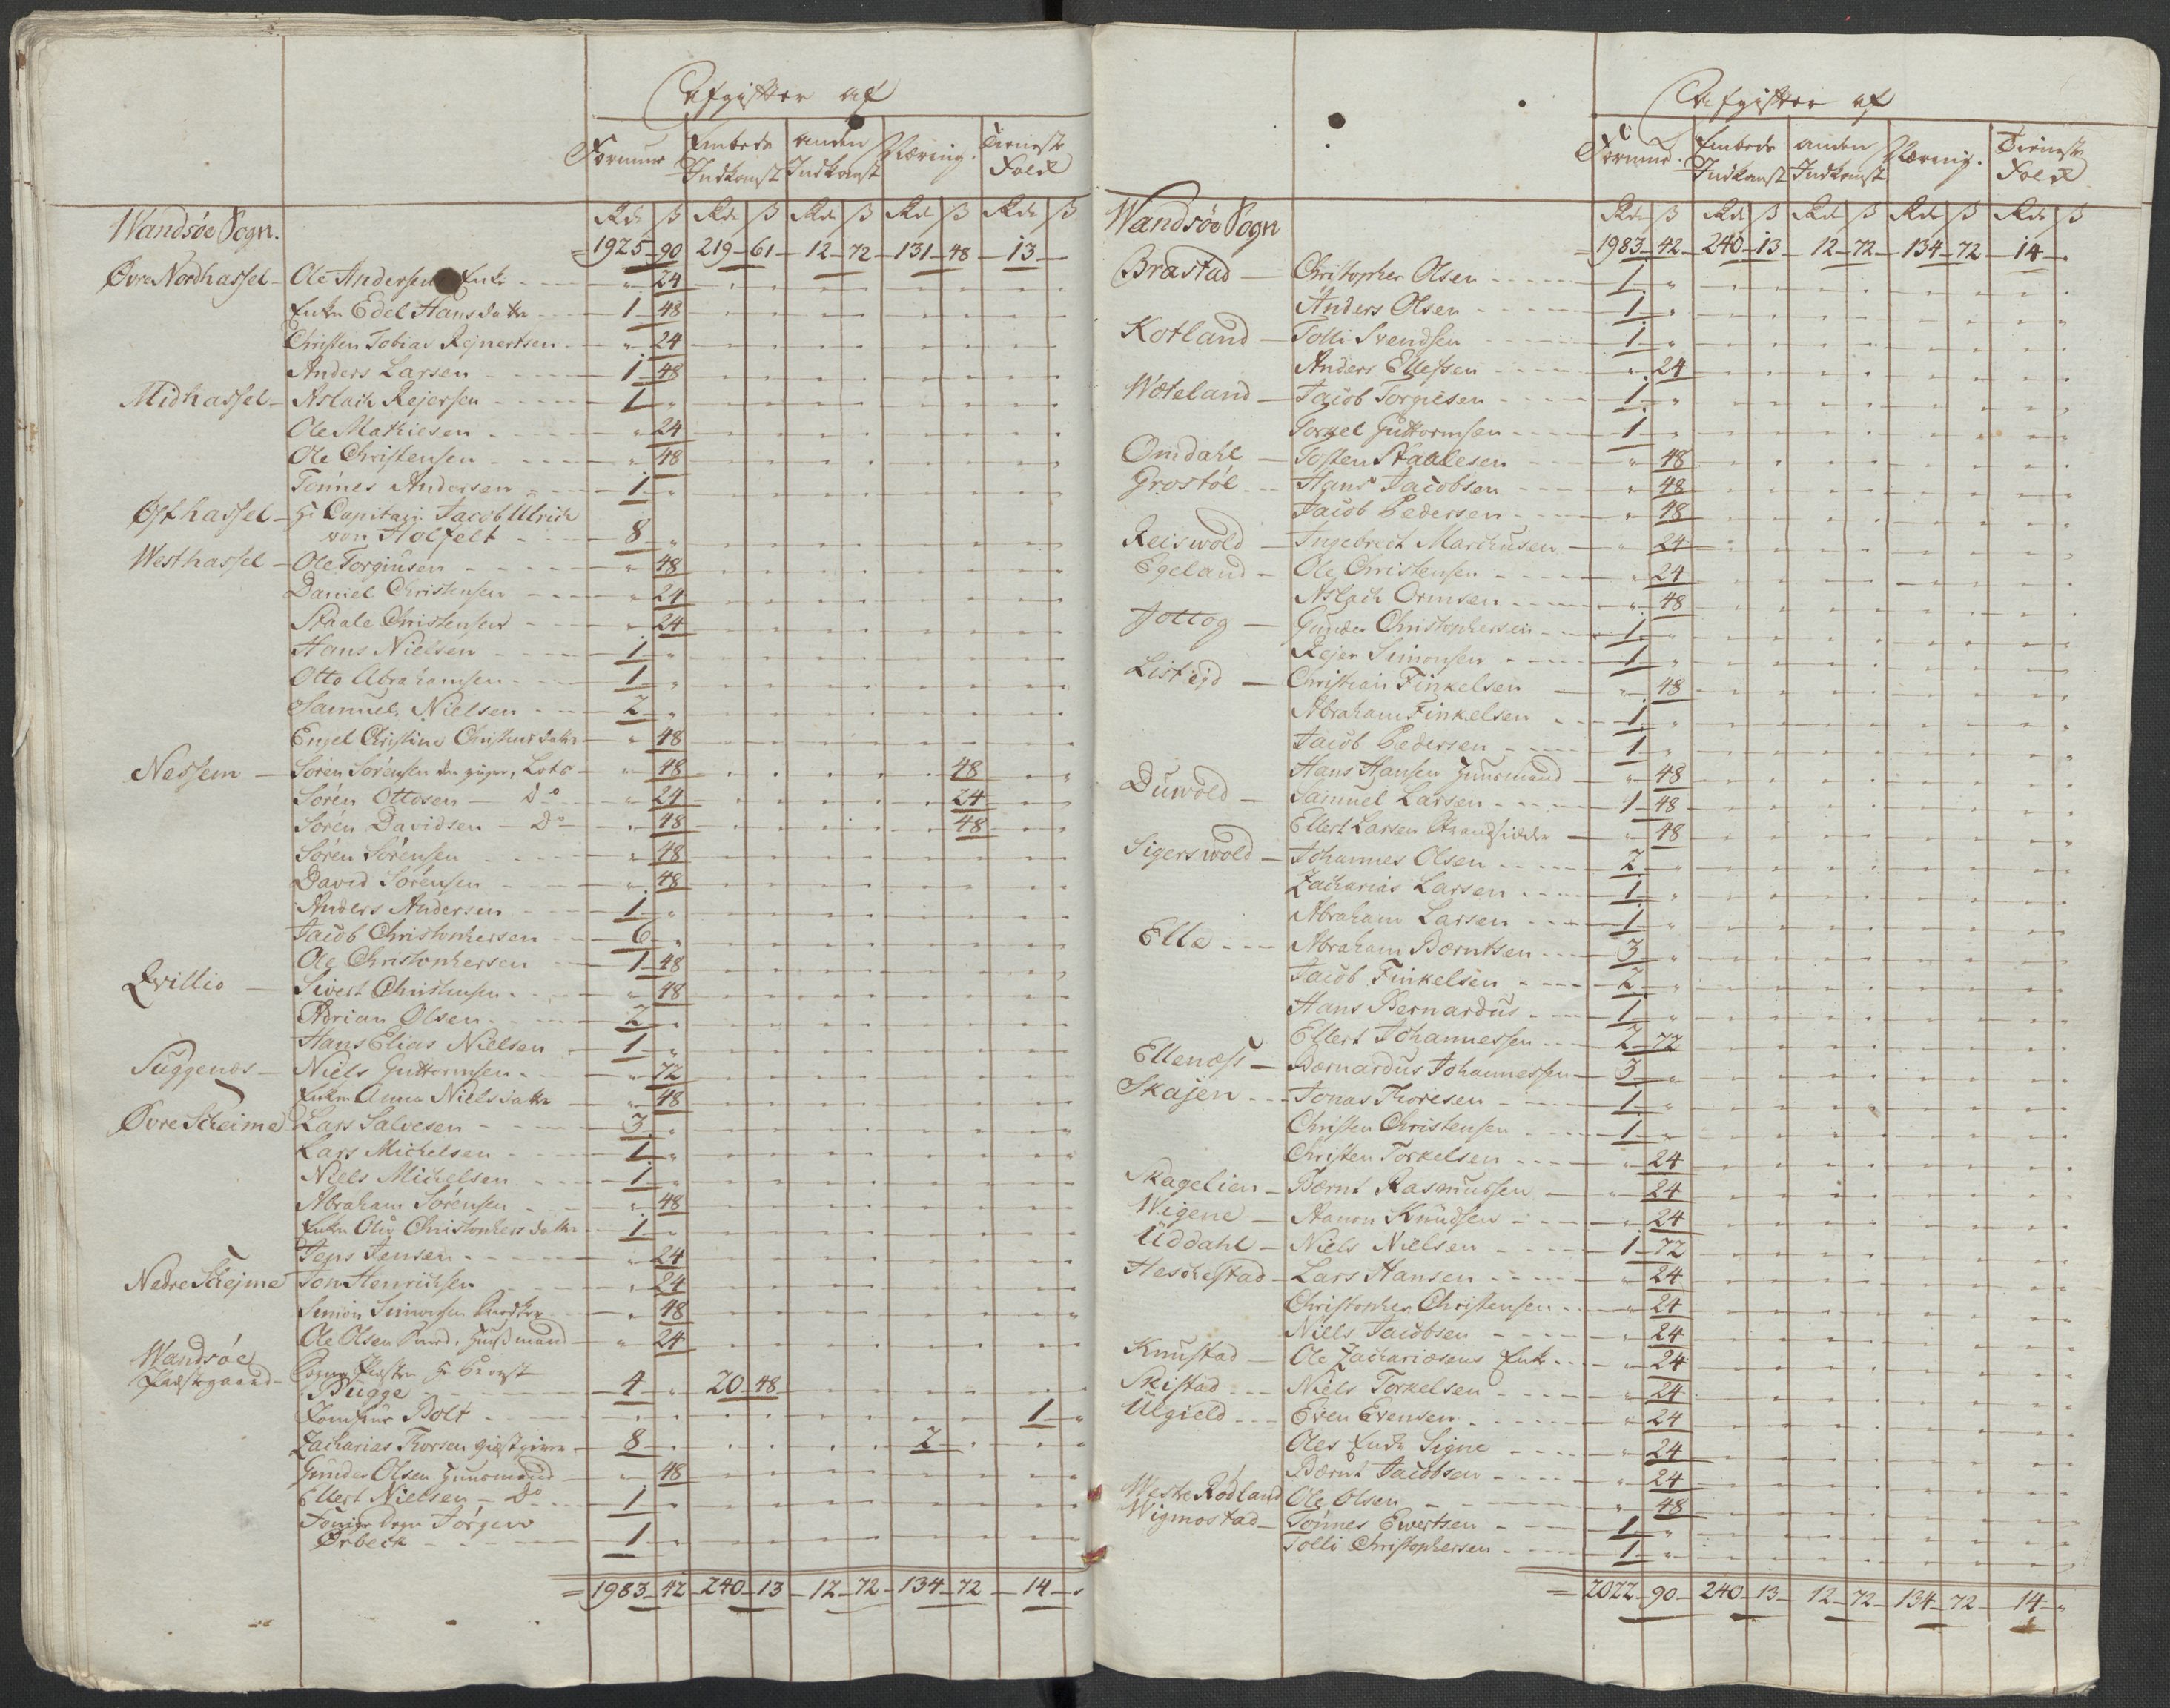 Afgifter af
Formue Embeds Indkomst anden Indkomst Næring. Tieneste Folk
Rd ß Rd ß Rd ß Rd ß Rd ß
Wandsøe Sogn.
= 1925 - 90 219 - 61 - 12 - 72 - 131 - 48 - 13 -
Øvre Nordhassel - Ole Andersens Enke - - " 24
Enken Edel Hansdatter - 1 - 48
Christen Tobias Rejnertsen - " 24
Anders Larsen - 1 - 48
Midhassel - Aslach Rejersen - 1 - "
Ole Mathiesen - " 24
Ole Christensen - " 48
Tönnes Andersen - 1 - "
Østhassel - Hr Capitain Jacob Ulrich
von Holfelt - 8 - "
Westhassel - Ole Torgiusen - " 48
Daniel Christensen - " 24
Staale Christensen - " 24
Hans Nielsen - 1 - "
Otto Abrahamsen - 1 - "
Samuel Nielsen - 2 - "
Engel Christine Christensdatter - " 48
Nessem - Sören Sörensen den yngre, Lots - " 48 48
Sören Ottosen - Do - " 24 24
Sören Davidsen - Do - " 48 48
Sören Sörensen - " 48
David Sörensen - " 48
Anders Andersen - 1 - "
Jacob Christophersen - 6 - "
Ole Christophersen - 1 - 48
Qvillio - Sivert Christensen - " 48
Adrian Olsen - 2 - "
Hans Elias Nielsen - 1 - "
Suggenes - Niels Guttormsen - " 72
Enken Anna Nielsdatter - " 48
Øvre Scheime Lars Salvesen - 3 - "
Lars Michelsen - 1 - "
Niels Michelsen - 1 - "
Abraham Sörensen - " 48
Enken Christophersdatter - 1 - "
Jens Jensen - " 24
Nedre Schejme Jon Henrichsen - " 24
Simon Simonsen - " 48
Ole Olsen Huusmand - " 24
Wandsøe
Præstegaard - Hr
Bugge - 4 - " 20 - 48
Jomfrue Bolt - 1 - "
Zacharias Thorsen giæstgiver - 8 - 2 -
Gunder Olsen Huusmand - " 48
Ellert Nielsen - Do - 1 - "
Jörgen
Ørbeck - 1 - "
= 1983 - 42 - 240 - 13 - 12 - 72 - 134 - 72 - 14 - "
Afgifter af
Formue. Embeds Indkomst anden Indkomst Næring. Tieneste Folk
Rd ß Rd ß Rd ß Rd ß Rd ß
Wandsøe Sogn
= 1983 - 42 - 240 - 13 - 12 - 72 - 134 - 72 - 14 -
Brastad - Christopher Olsen - 1 - "
Anders Olsen - 1 - "
Kotland - Tolli Svendsen - 1 - "
Anders Ellefsen - " 24
Wæteland - Jacob Torgiesen - 1 - "
Torkel Guttormsen - 1 - "
Omdahl - Tosten Staalesen - " 48
Grostöl - Hans Jacobsen - " 48
Jacob Pedersen - " 48
Reiswold - Ingebrect Marchusen - " 24
Egeland - Ole Christensen - " 24
Aslach Ormsen - " 48
Jottog - Gunder Christophersen - 1 - "
Rejer Simonsen - 1 - "
Listejd - Christian Finkelsen - " 48
Abraham Finkelsen - 1 - "
Jacob Pedersen - 1 - "
Hans Hansen Huusmand - " 48
Duwold - Samuel Larsen - 1 - 48
Ellert Larsen Strandsidder - " 48
Sigerswold - Johannes Olsen - 2 - "
Zacharias Larsen - 1 - "
Abraham Larsen - 1 - "
Elle - Abraham Berntsen - 3 - "
Jacob Finkelsen - 2 - "
Hans Bernardus - 1 - "
Ellert Johannessen - 2 - 72
Ellenæss - Bernardus Johannessen - 3 - "
Skajen - Jonas Thoresen - 1 - "
Christen Christensen - 1 - "
Christen Torkelsen - " 24
Skagelien - Bernt Rasmussen - " 24
Wigene - Aanon Knudsen - " 24
Uddahl - Niels Nielsen - 1 - 72
Heschestad - Lars Hansen - " 24
Christopher Christensen - " 24
Niels Jacobsen - " 24
Knustad - Ole Zachariæsens Enke - " 24
Skistad - Niels Torkelsen - " 24
Ulgield - Even Evensen - " 24
Oles Enke Signe - " 24
Bernt Jacobsen - " 24
Westre Rödland Ole Olsen - " 48
Wigmostad - Tönnes Evertsen - 1 - "
Tolli Christophersen - 1 - "
= 2022 - 90 - 240 - 13 - 12 - 72 - 134 - 72 - 14 - "